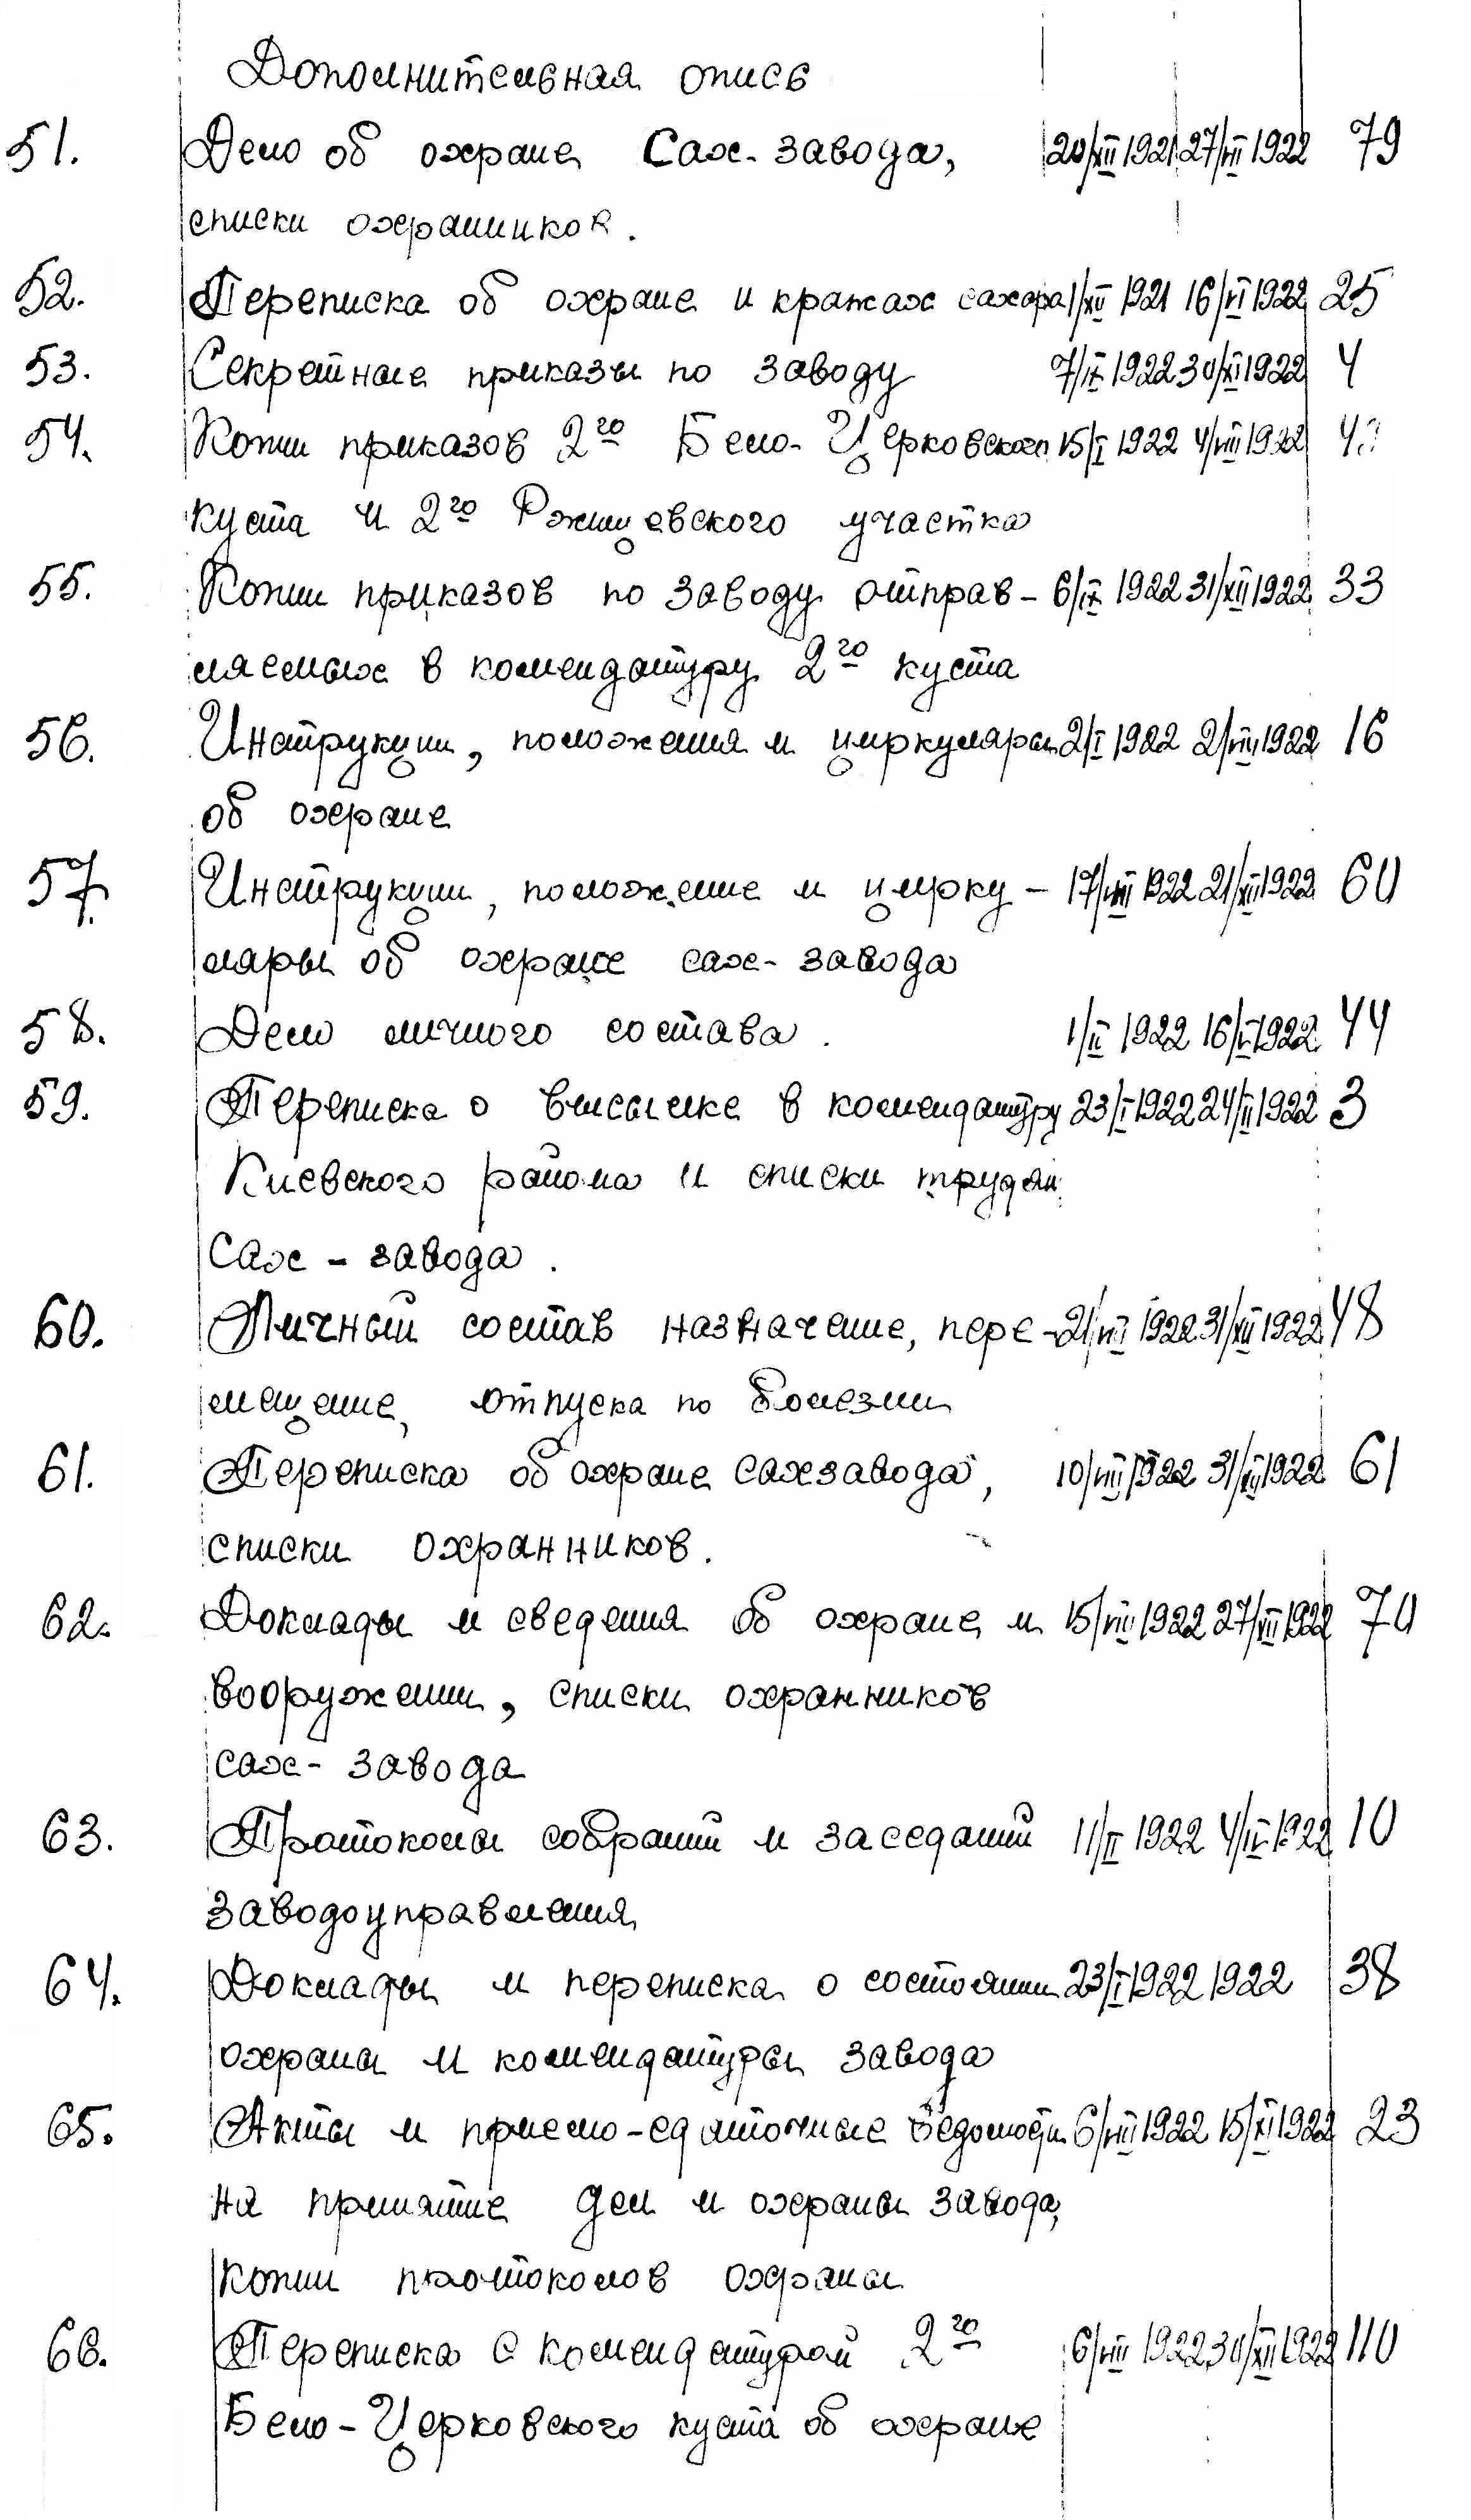 Дополнительная опись
51. Дело об охране Сах. завода, 20/XII 1921 27/VII 1922 79
списки охранников.
52. Переписка об охране и кражах сахара 1/XII 1921 16/VI 1922 25
53. Секретные приказы по заводу 7/IX 1922 30/XI 1922 4
54. Копии приказов 2го Бело-Церковского 15/I 1922 4/VIII 1922
куста и 2го Ржищевского участка
55. Копии приказов по заводу отправ- 6/IX 1922 31/XII 1922 33
ляемых в комендатуру 2го куста
56. Инструкции, положения и циркуляры 2/I 1922 2/VIII 1922 16
об охране
57. Инструкции, положение и цирку- 17/VIII 1922 21/XII 1922 60
ляры об охране сах-завода
58. Дело личного состава. 1/II 1922 16/V 1922 44
59. Переписка о высылке в комендатуру 23/I 1922 24/II 1922 3
Киевского района и списки трударм.
Сах-завода.
60. Личный состав назначение, пере- 21/VII 1922 31/XII 1922 48
мещение, отпуска по болезни
61. Переписка об охране сахзавода, 10/VIII 1922 31/XII 1922 61
списки охранников.
62. Доклады и сведения об охране и 15/VIII 1922 27/XII 1922 70
вооружении, списки охранников
сах-завода
63. Протоколы собраний и заседаний 11/II 1922 4/IV 1922 10
заводоуправления
64. Доклады и переписка о состоянии 23/I 1922 1922 38
охраны и комендатуры завода
65. Акты и приемо-сдаточные ведомости 6/VIII 1922 15/XI 1922 23
на принятие дел и охраны завода,
копии протоколов охраны
66. Переписка с комендатурой 2го 6/VIII 1922 30/XII 1922 110
Бело-Церковского куста об охране